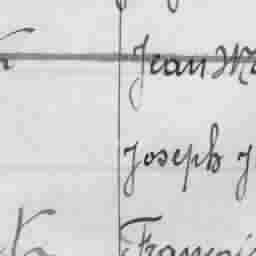 Jean M
Joseph J
Françoi